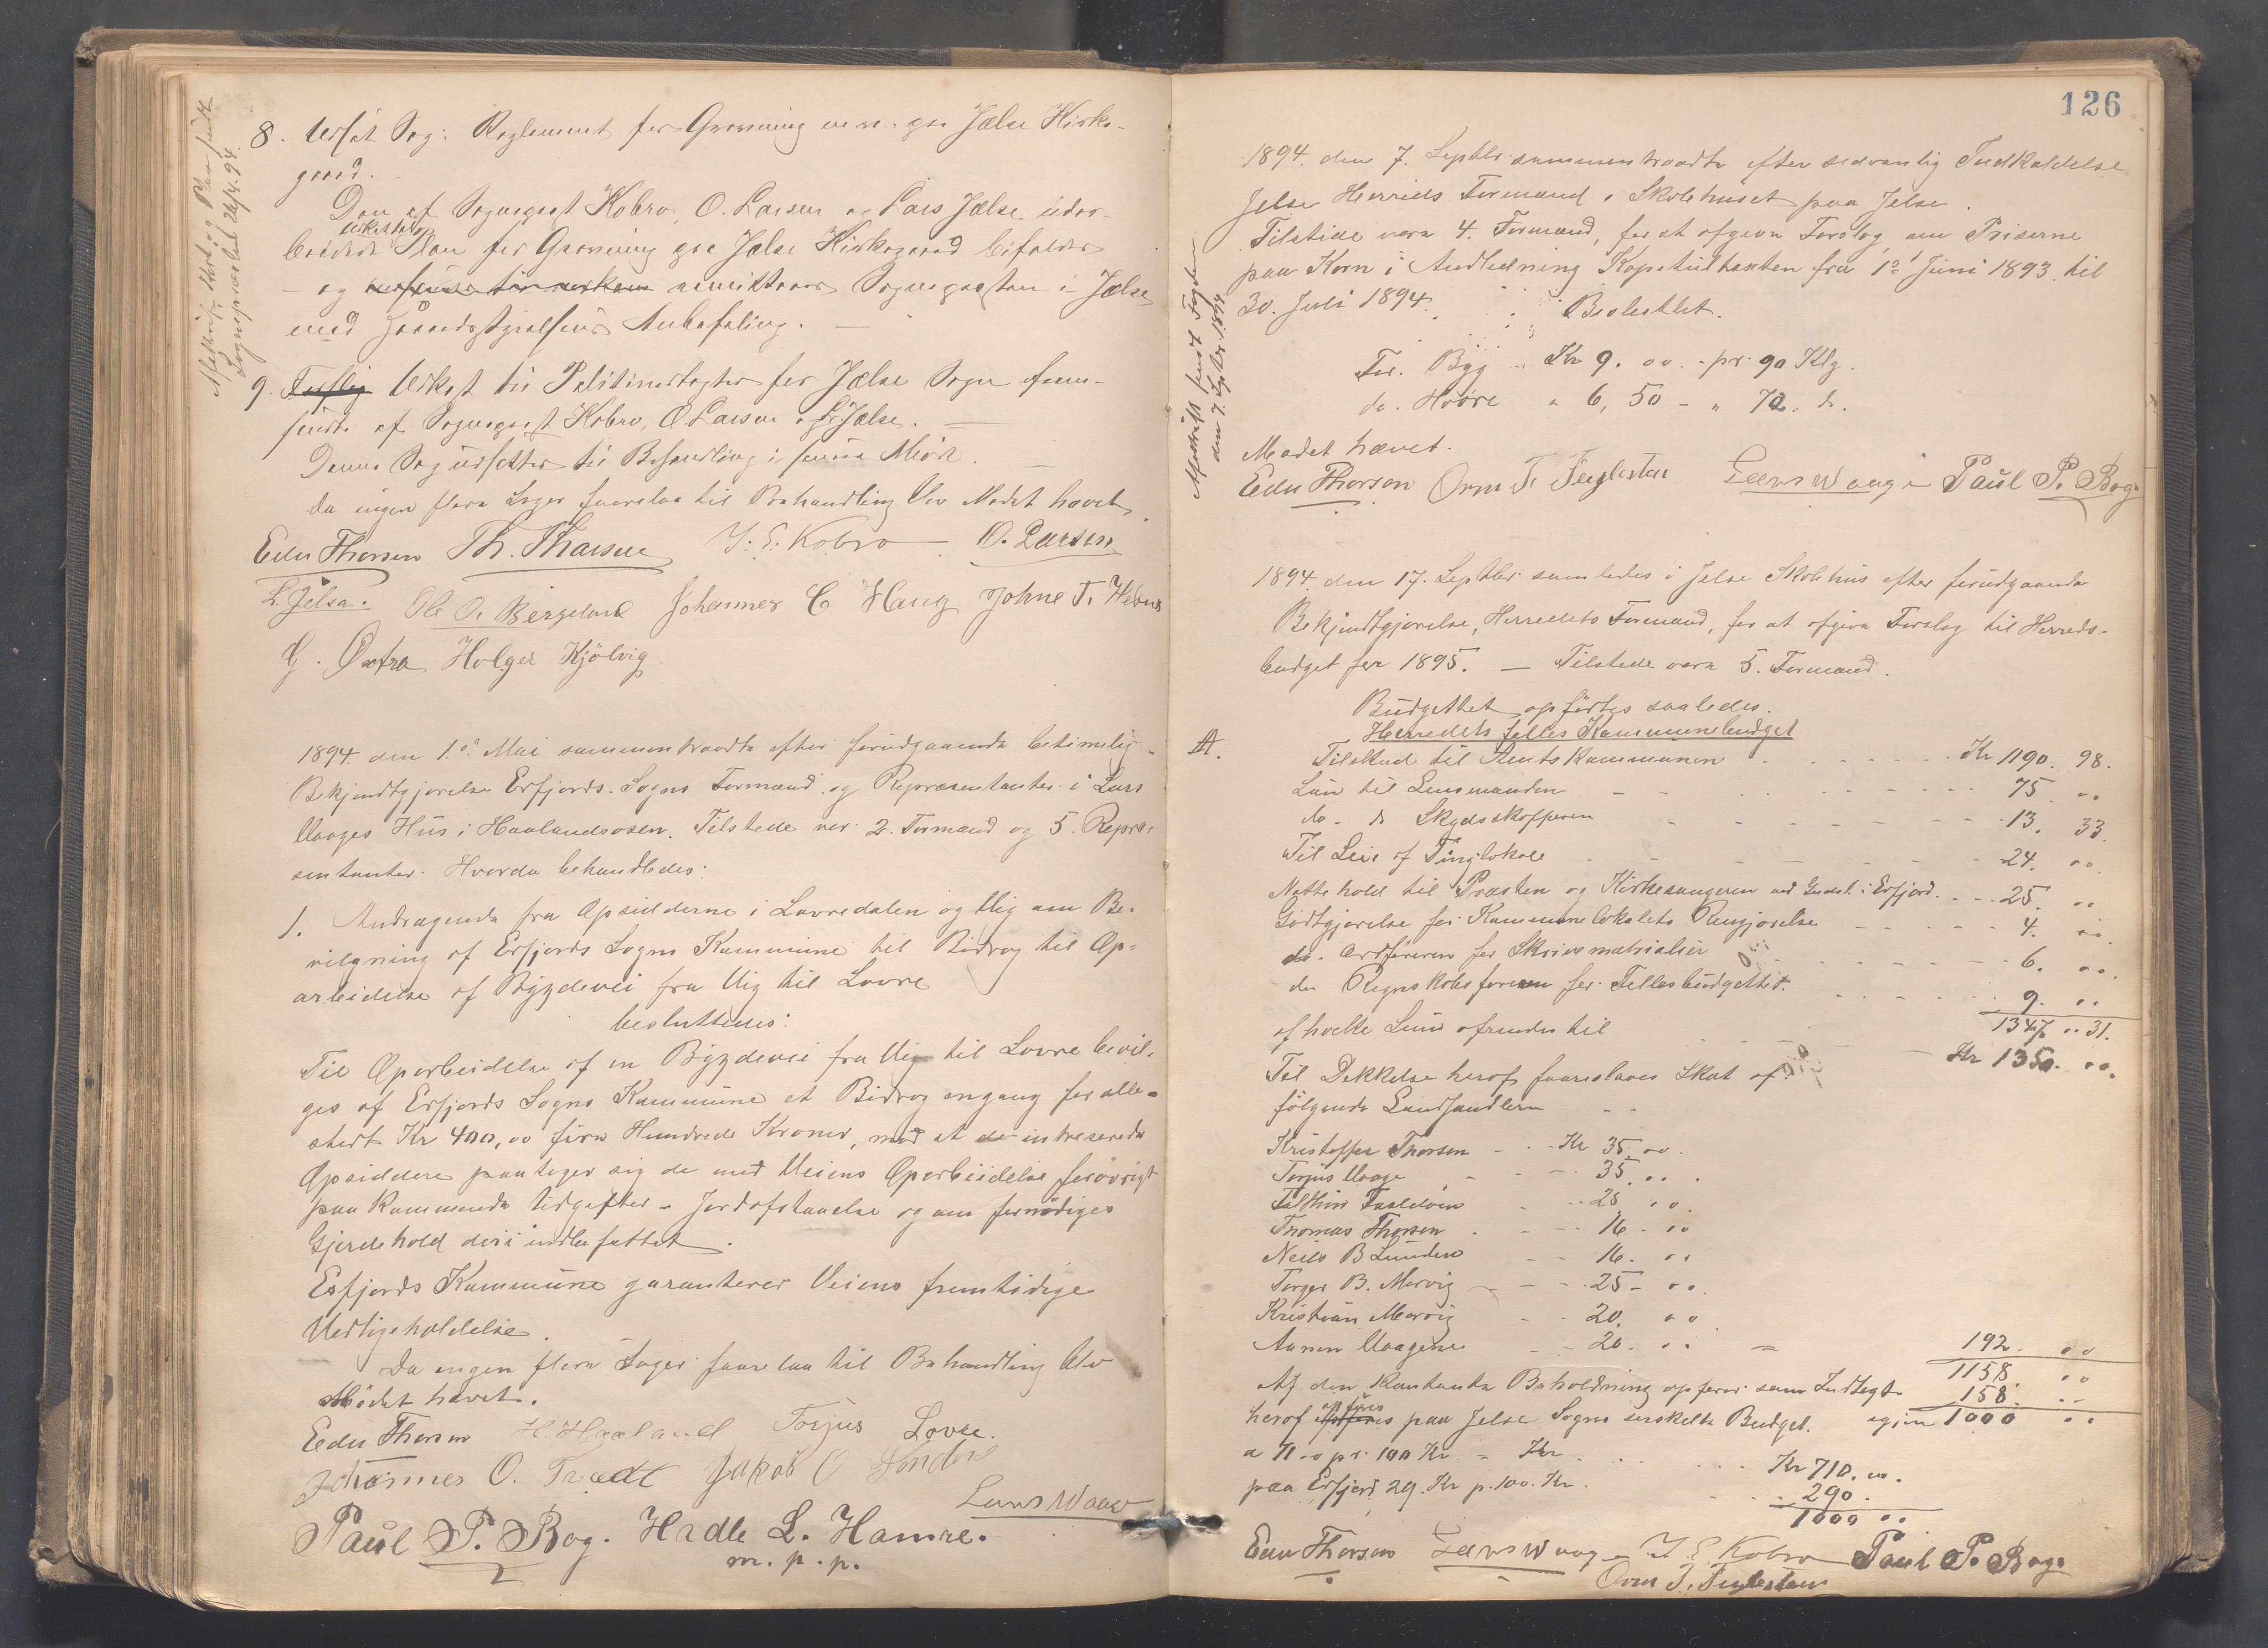 8. Udsat Sag: Reglement for Gravning m.m. paa Jælse Kirke-
gaard.
Den af Sognepræst Kobro, O. Larsen og Lars Jælse udar-
beidede Plan for Gravning paa Jælse Kirkegaard bifaldes
og Sognepræsten i Jælse
med Herredsstyrelsens Anbefaling.
9. Udkast til Politivedtægter for Jælse Sogn frem-
sendt af Sognepræst Kobro, O. Larsen og L. Jælse.
Denne Sag udsættes til Behandling i senere Møde.
Da ingen flere Sager forelaa til Behandling blev Mødet hævet.
Edv Thorsen Th. Thorsen J. E. Kobro O. Larsen
L. Jelsa. Ole O. Bergeland Johannes C Haug Johne T. Hebnes
G. Øxtra Holger Kjölvig
1894 den 1ste Mai sammentraadte efter forudgaaende betimelig
Bekjendtgjørelse Erfjords Sogns Formænd og Repræsentanter i Lars
Vaages Hus i Haalandsosen. Tilstede var 2. Formænd og 5. Repræ-
sentanter. Hvorda behandledes:
1. Andragende fra Opsidderne i Lovredalen og Vig om Be-
vilgning af Erfjords Sogns Kommune til Bidrag til Op-
arbeidelse af Bygdevei fra Vig til Lovre
besluttedes:
Til Oparbeidelse af en Bygdevei fra Vig til Lovre bevil-
ges af Erfjords Sogns Kommune et Bidrag engang for alle-
stedt Kr 400,00 fire Hundrede Kroner, mod at de intreserede
Opsiddere paatager sig de med Veiens Oparbeidelse forövrigt
paa kommende Udgifter - Jordafstaaelse og om fornödiges
Gjerdehold deri indbefattet.
Erfjords Kommune garanterer Veiens fremtidige
Vedligeholdelse.
Da ingen flere Sager forelaa til Behandling blev
Mödet hævet.
Edv Thorsen H. Haaland Torjus Lovre.
Johannes O. Tradt Jakob O
Lars Waage
Paul P. Bog. Hadle L. Hamre.
m. p. p.
126
1894. den 7. Septbr. sammentraadte efter sedvanlig Indkaldelse
Jelse Herreds Formænd i Skolehuset paa Jelse.
Tilstede vare 4. Formænd, for at afgive Forslag om Priserne
paa Korn i Anledning Kapitultaxten fra 1ste Juni 1893. til
30. Juli 1894.
Besluttet.
For. Byg Kr 9. 00. - pr. 90 Klg.
do. Havre " 6, 50 - " 72. do.
Mødet hævet.
Edv Thorsen Orm T. Fuglesten Lars Waage Paul P. Bog
Afskrift sendt Fogden
den 7. Septbr. 1894.
1894. den 17. Septbr. samledes i Jelse Skolehus efter forudgaaende
Bekjendtgjørelse, Herredets Formænd, for at afgive Forslag til Herreds-
budget for 1895. — Tilstede vare 5. Formænd.
Budgettet opförtes saaledes.
Herredets fælles Kommunebudget
A. Tilskud til Amtskommunen Kr 1190. 98.
Løn til Lensmanden 75. 00
do. do Skydsskafferen 13. 33
Til Leie af Tinglokale 24. 00
Nattehold til Præsten og Kirkesangeren ved Gudst. i Erfjord. 25. 00
Godtgjørelse for Kommunelokalets Rengjørelse 4. 00
do. Ordføreren for Skrivematrialier 6. 00.
do Regnskabsføreren for Fellesbudgettet. 9. 00
1347 .. 31.
af hvilke Sum afrundes til Kr 1350. 00.
Til Dekkelse heraf foreslaaes Skat af
følgende Landhandlere
Kristoffer Thorsen Kr 35. 00.
Torjus Vaage 35. 00.
25. 00.
Thomas Thorsen 16 - 00
Neils B Lunden 16. 00
Torger B. Mervig 25 - 00.
Kristian Mervig 20. 00
Vaagene 20. 00 = 192. 00
1158. 00
Af den kontante Beholdning opføres som Indtegt 158. 00
heraf opføres paa Jelse Sogns serskelte Budget. igjen 1000 00
a 71.00 pr. 100 Kr. = Kr Kr 710. 00.
paa Erfjord 29. Kr p. 100. Kr. 290.
1000 00
Edv Thorsen Lars Waage J. E. Kobro Paul P. Bog
Orm T. Fuglesten